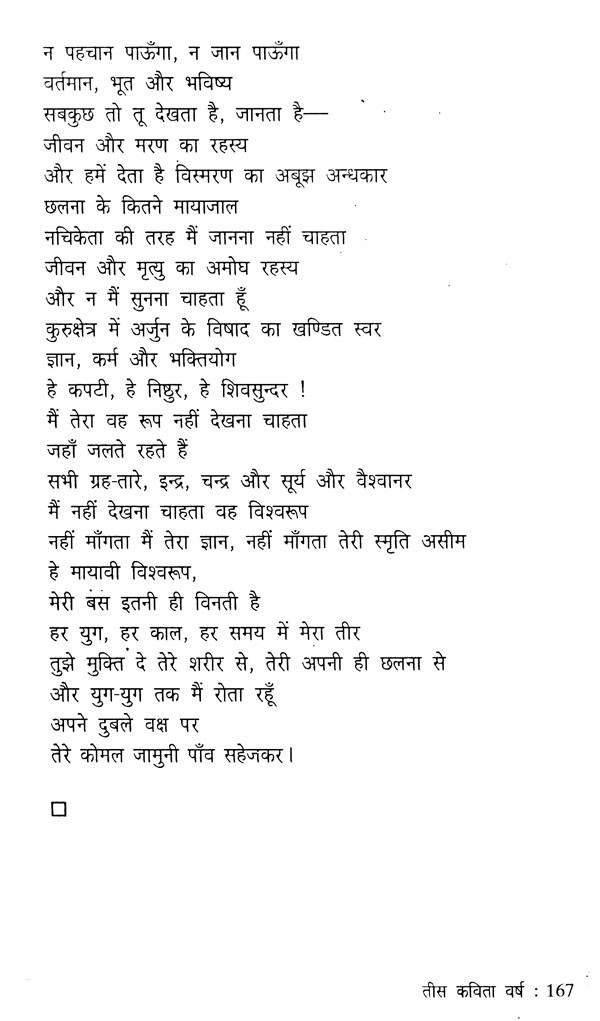 न पहचान पाऊँगा, न जान पाऊँगा
वर्तमान, भूत और भविष्य
सबकुछ तो तू देखता है, जानता है—
जीवन और मरण का रहस्य
और हमें देता है विस्मरण का अबूझ अन्धकार
छलना के कितने मायाजाल
नचिकेता की तरह मैं जानना नहीं चाहता
जीवन और मृत्यु का अमोघ रहस्य
और न मैं सुनना चाहता हूँ
कुरुक्षेत्र में अर्जुन के विषाद का खण्डित स्वर
ज्ञान, कर्म और भक्तियोग
हे कपटी, हे निष्ठुर, हे शिवसुन्दर !
मैं तेरा वह रूप नहीं देखना चाहता
जहाँ जलते रहते हैं
सभी ग्रह-तारे, इन्द्र, चन्द्र और सूर्य और वैश्वानर
मैं नहीं देखना चाहता वह विश्वरूप
नहीं माँगता मैं तेरा ज्ञान, नहीं माँगता तेरी स्मृति असीम
हे मायावी विश्वरूप,
मेरी बस इतनी ही विनती है
हर युग, हर काल, हर समय में मेरा तीर
तुझे मुक्ति दे तेरे शरीर से, तेरी अपनी ही छलना से
और युग-युग तक मैं रोता रहूँ
अपने दुबले वक्ष पर
तेरे कोमल जामुनी पाँव सहेजकर।
तीस कविता वर्ष : 167